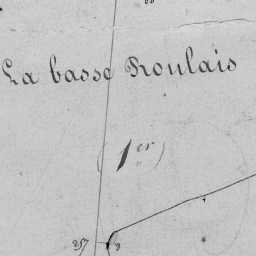 La basse Roulais
(1er)
257